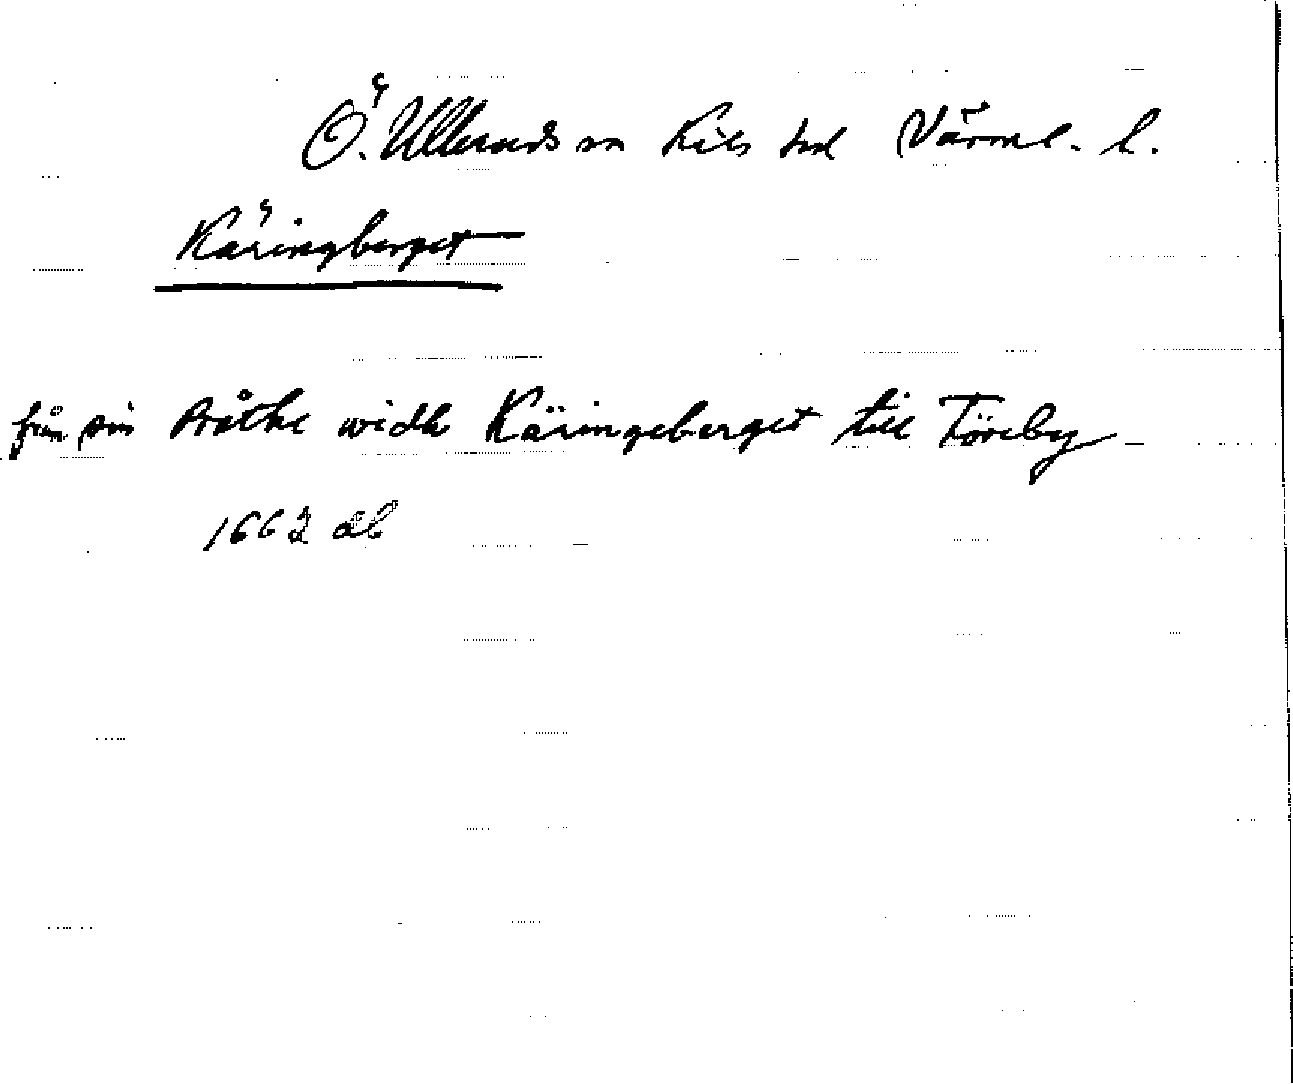 Ö. Ullerud sn Kils hd Värml. l.
Käringberget
från sin stråke widh Käringeberget till Töreby
1662 db